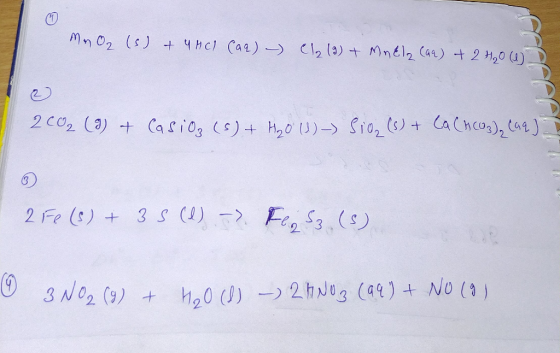 1
MnO2 (s) + 4HCl (aq) → Cl2 (g) + MnCl2 (aq) + 2H2O (l)
2
2CO2 (g) + CaSiO3 (s) + H2O (l) → SiO2 (s) + Ca(HCO3)2 (aq)
3
2Fe (s) + 3S (l) → Fe2S3 (s)
4
3NO2 (g) + H2O (l) → 2HNO3 (aq) + NO (g)